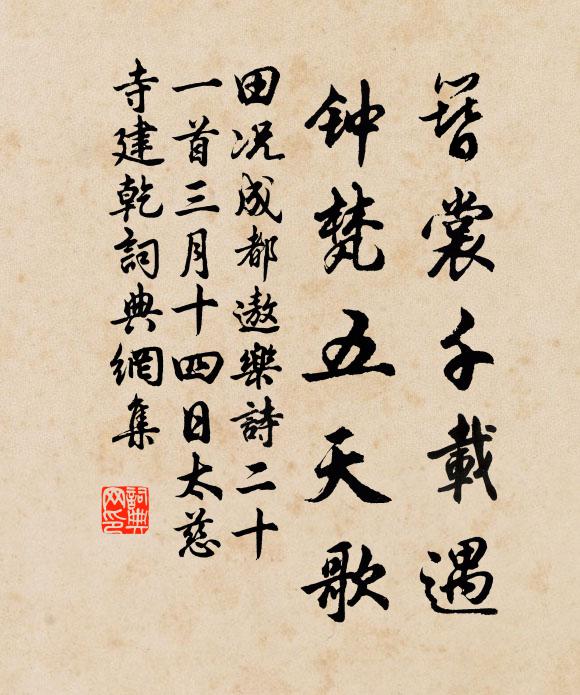 簪裳千載遇
钟梵五天歌
田況成都遨樂詩二十
一首三月十四日太慈
寺建乾詞典網集
詞典网印